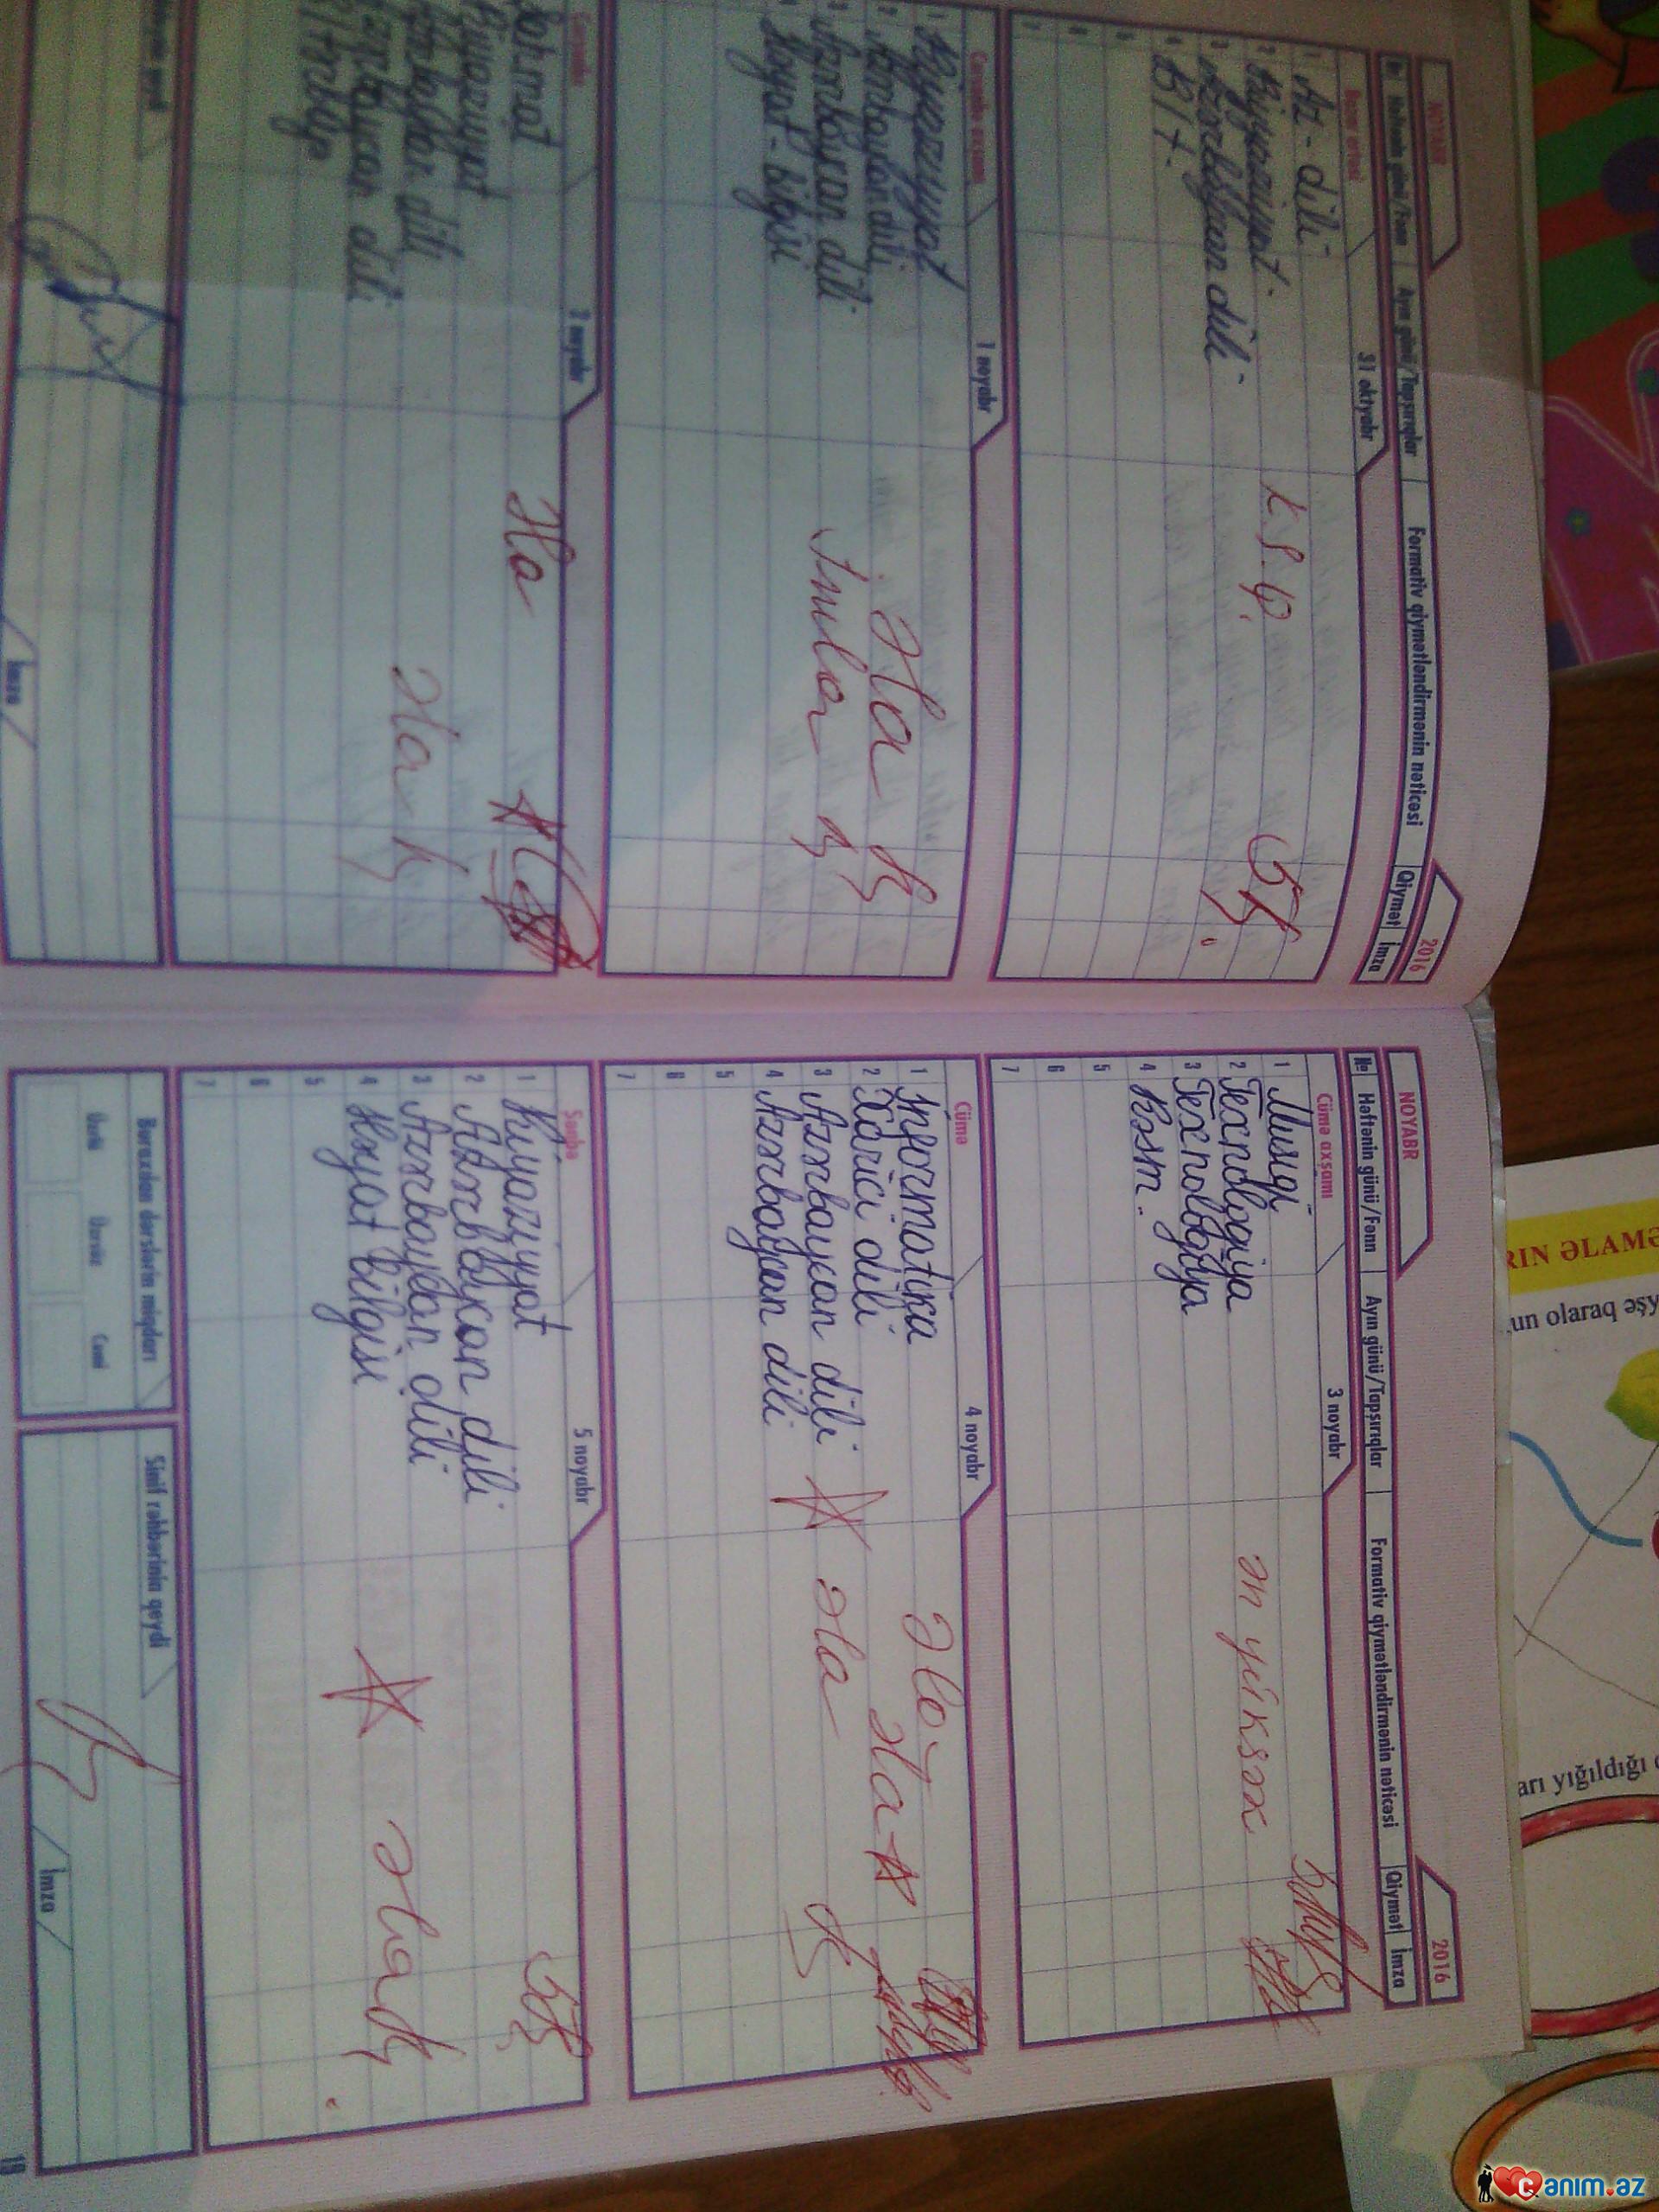 NOYABR
2016
№ Həftənin günü/Fənn Ayın günü/Tapşırıqlar Formativ qiymətləndirmənin nəticəsi Qiymət İmza
Bazar ertəsi 31 oktyabr
1 Az-dili
2 Riyaziyyat K.S.Q 5
3 Azərbaycan dili
4 BIT.
5
6
7
Çərşənbə axşamı 1 noyabr
1 Riyaziyyat
2 Azərbaycan dili əla
Azərbaycan dili imla
Həyat-bilgisi
Çərşənbə 2 noyabr
Şahmat əla
Riyaziyyat
Azərbaycan dili əla
Azərbaycan dili
F/Tərbiyə
İmza
NOYABR
2016
№ Həftənin günü/Fənn Ayın günü/Tapşırıqlar Formativ qiymətləndirmənin nəticəsi Qiymət İmza
Cümə axşamı 3 noyabr
1 Musiqi
2 Texnologiya ən yüksək
3 Texnologiya
4 Rəsm.
5
6
7
Cümə 4 noyabr
1 İnformatika əla
2 Xarici dili əla
3 Azərbaycan dili əla
4 Azərbaycan dili
5
6
7
Şənbə 5 noyabr
1 Riyaziyyat 5
2 Azərbaycan dili
3 Azərbaycan dili
4 Həyat bilgisi əla
5
6
7
Buraxılan dərslərin miqdarı
Üzrlü Üzrsüz Cəmi
Sinif rəhbərinin qeydi
İmza
19
RIN ƏLAMƏ
un olaraq əşy
arı yığıldığı
Canim.az